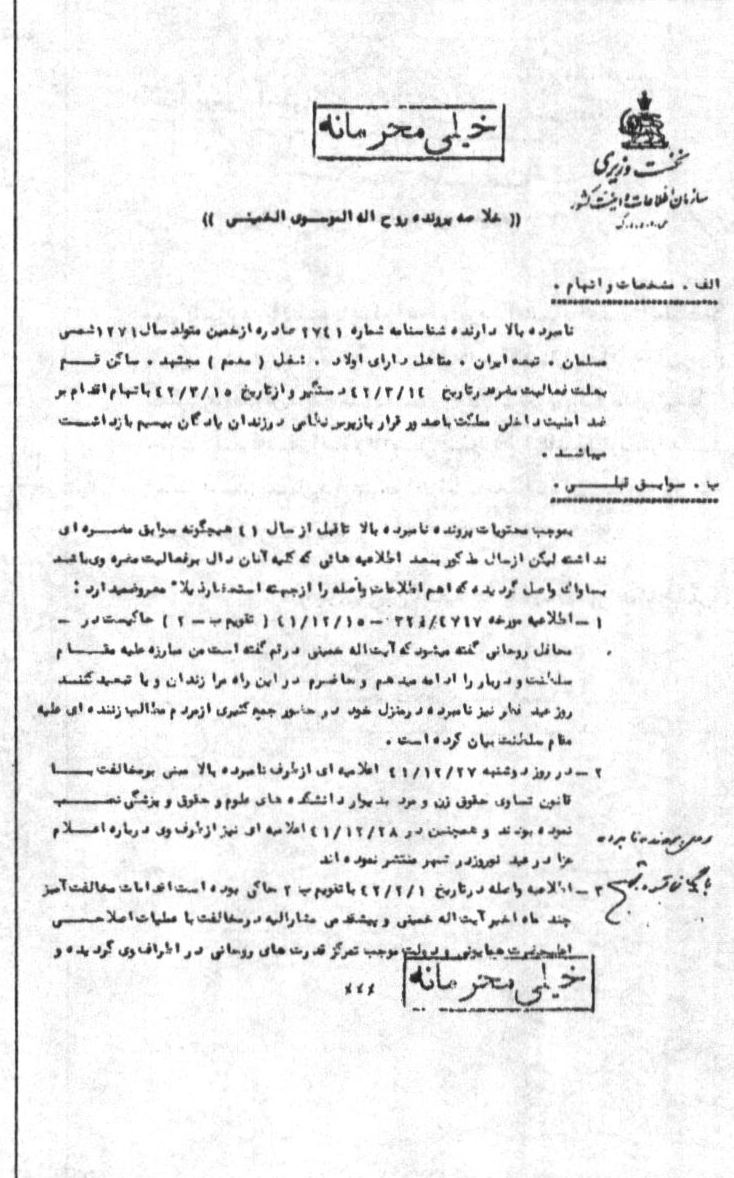 خیلی محرمانه
نخست وزیری
سازمان اطلاعات و امنیت کشور
س.ا.و.ا.ک
(( خلاصه پرونده روح اله الموسوی الخمینی ))
الف . مشخصات و اتهام .
نامبرده بالا دارنده شناسنامه شماره ۲۷۴۱ صادره از خمین متولد سال ۱۲۷۱ شمسی
مسلمان . تبعه ایران . متاهل دارای اولاد . شغل ( معمم ) مجتهد . ساکن قسم
بعلت فعالیت مضره در تاریخ ۴۲/۳/۱۴ دستگیر و از تاریخ ۴۲/۳/۱۵ باتهام اقدام بر
ضد امنیت داخلی مملکت باصدور قرار بازپرس نظامی در زندان پادگان بیسیم بازداشت
میباشد .
ب . سوابق قبلی .
بموجب محتویات پرونده نامبرده بالا تا قبل از سال ۴۱ هیچگونه سوابق مضره ای
نداشته لیکن از سال مذکور ببعد اطلاعیه هائی که کلیه آنان دال بر فعالیت مضره وی باشد
بساواک واصل گردیده که اهم اطلاعات واصله را از جهت استحضار ذیلا" معروضمیدارد :
۱ – اطلاعیه مورخه ۴۱/۱۲/۱۵ ( تقویم ب – ۲ ) حاکیست در –
محافل روحانی گفته میشود که آیت اله خمینی در قم گفته است من مبارزه علیه مقام
سلطنت و دربار را ادامه میدهم و حاضرم در این راه مرا زندان و یا تبعید کنند
روز عید فطر نیز نامبرده در منزل خود در حضور جمع کثیری از مردم مطالب زننده ای علیه
مقام سلطنت بیان کرده است .
۲ – در روز دوشنبه ۴۱/۱۲/۲۷ اعلامیه ای از طرف نامبرده بالا مبنی بر مخالفت با
قانون تساوی حقوق زن و مرد بدیوار دانشکده های علوم و حقوق و پزشگی نصب
نموده بودند و همچنین در ۴۱/۱۲/۲۸ اعلامیه ای نیز از طرف وی درباره اعلام
عزا در عید نوروز در شهر منتشر نموده اند
۳ – اطلاعیه واصله در تاریخ ۴۲/۲/۱ با تقویم ب ۲ حاکی بوده است اقدامات مخالفت آمیز
چند ماه اخیر آیت اله خمینی و پیشقدمی مشارالیه در مخالفت با عملیات اصلاحی
اعلیحضرت همایونی و دولت موجب تمرکز قدرت های روحانی در اطراف وی گردیده و
خیلی محرمانه